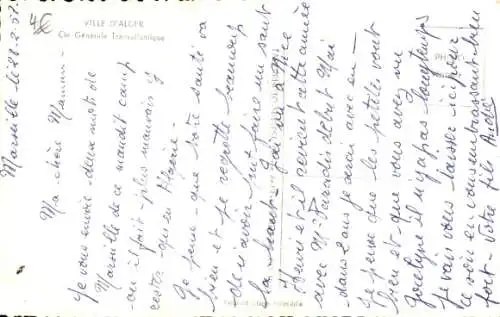 4€
VILLE D'ALGER
Cie Générale Transatlantique
Marseille le 28.2.52.
Ma chère Maman -
Je vous envoie deux mots de
Marseille de ce maudit camp
où il fait plus mauvais
certes qu'en Algérie -
Je pense que votre santé va
bien et je regrette beaucoup
de n'avoir pu faire un saut
Henri et il revient cette année
avec M. Paradis début Mai
dans 2 ans je serai avec eux -
Je pense que les petites vont
bien et que vous avez vu
Jocelyne il n'y a pas longtemps
Je vais vous laisser ici pour
ce soir en vous embrassant bien
fort - Votre fils André